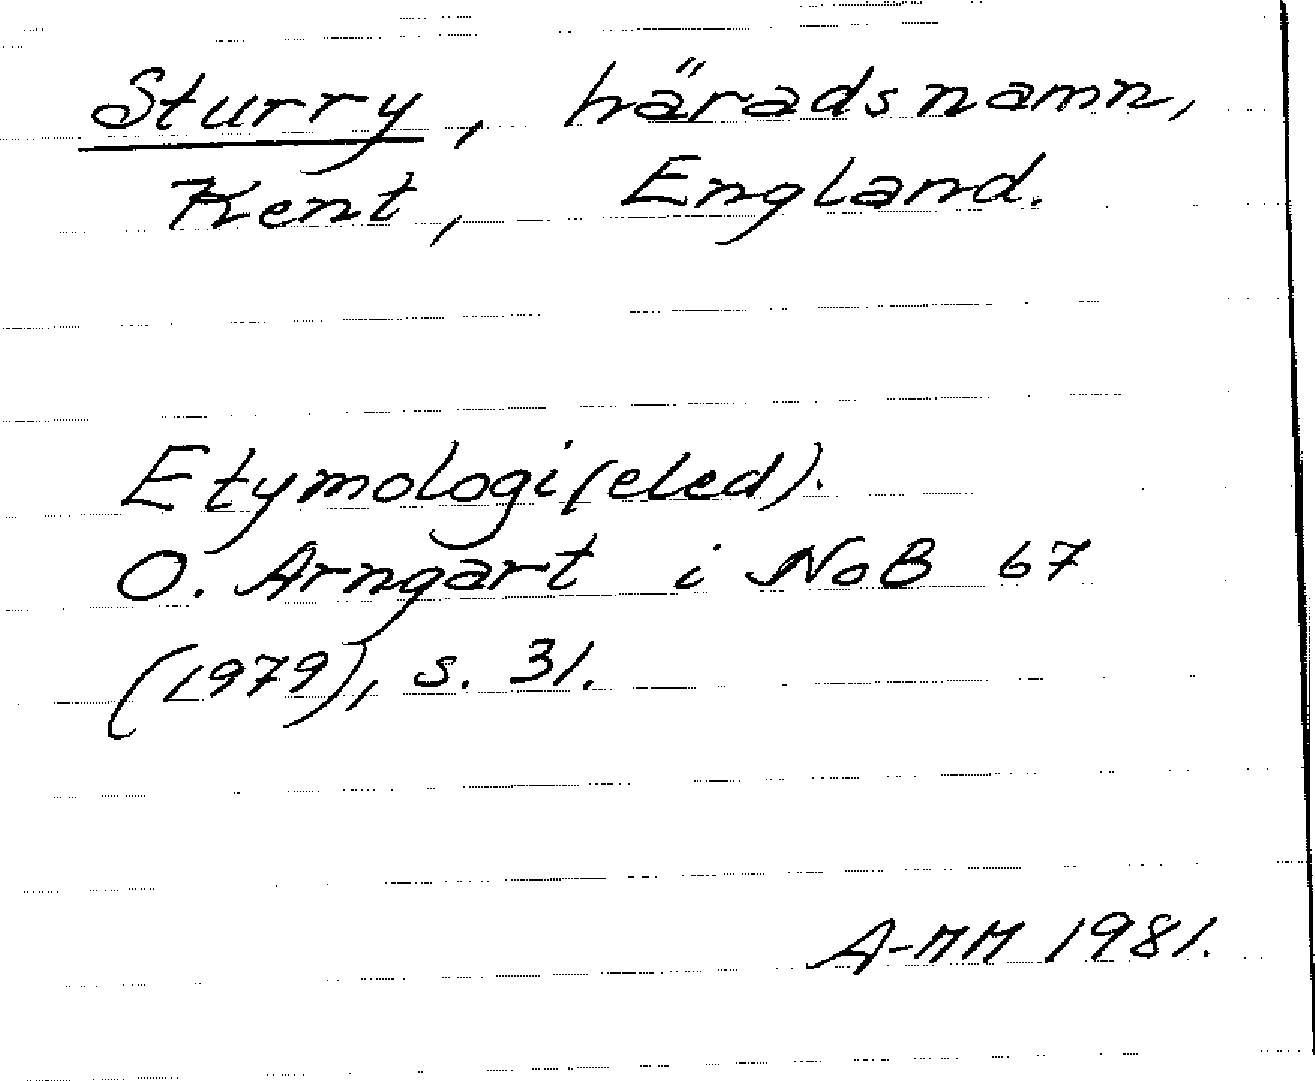 Sturry, häradsnamn,
Kent, England.
Etymologi (eled).
O. Arngart i NoB 67
(1979), s. 31.
A-MM 1981.